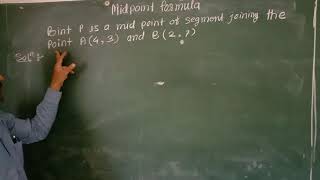 Midpoint formula
Point P is a mid point of segment joining the
Point A(4,3) and B(2,
Solⁿ: